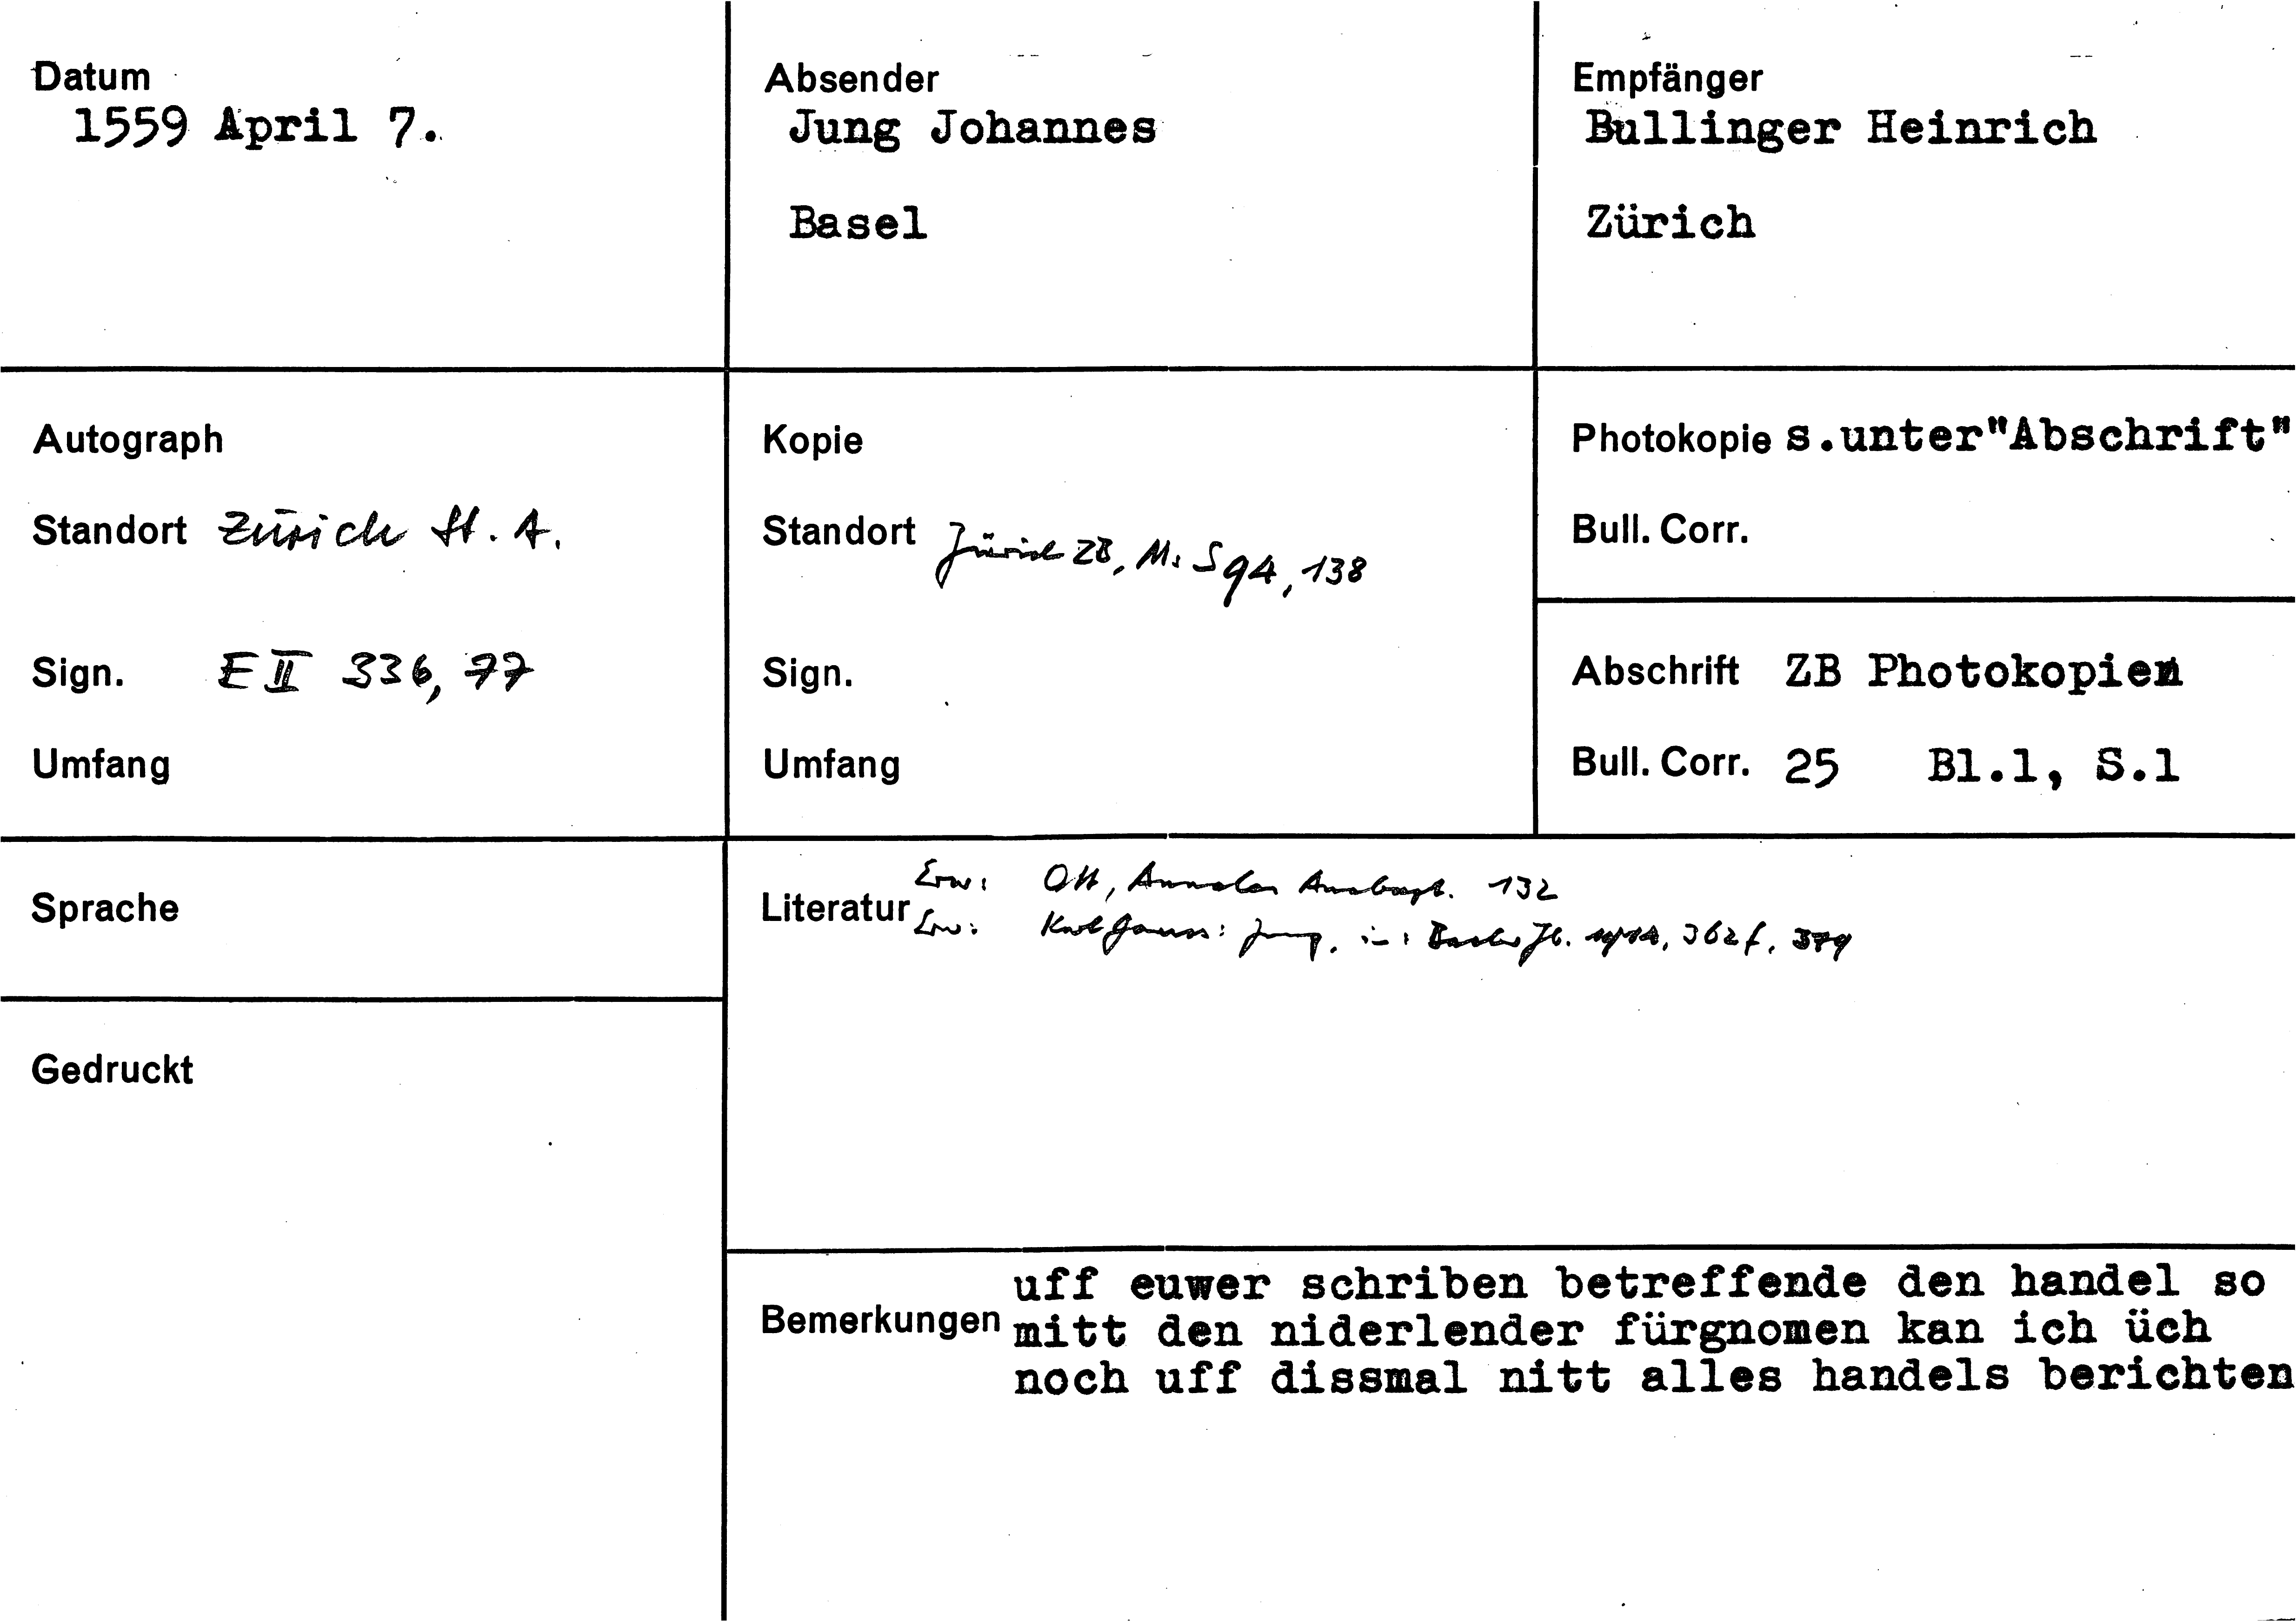 Datum
1559 April 7.
Absender
Jung Johannes
Basel
Empfänger
Bullinger Heinrich
Zürich
Autograph
Standort Zürich St. A.
Sign. E II 336, 77
Umfang
Kopie
Standort Zürich ZB, Ms S 94, 138
Sign.
Umfang
Photokopie s.unter"Abschrift"
Bull. Corr.
Abschrift ZB Photokopien
Bull. Corr. 25 Bl.1, S.1
Sprache
Gedruckt
Literatur
Erw: Ott, Annales Anabapt. 132
Erw: Karl Gauss: Jung, in: Basler Jb. 1914, 362 f, 379
Bemerkungen
uff euwer schriben betreffende den handel so
mitt den niderlender fürgnomen kan ich üch
noch uff dissmal nitt alles handels berichten